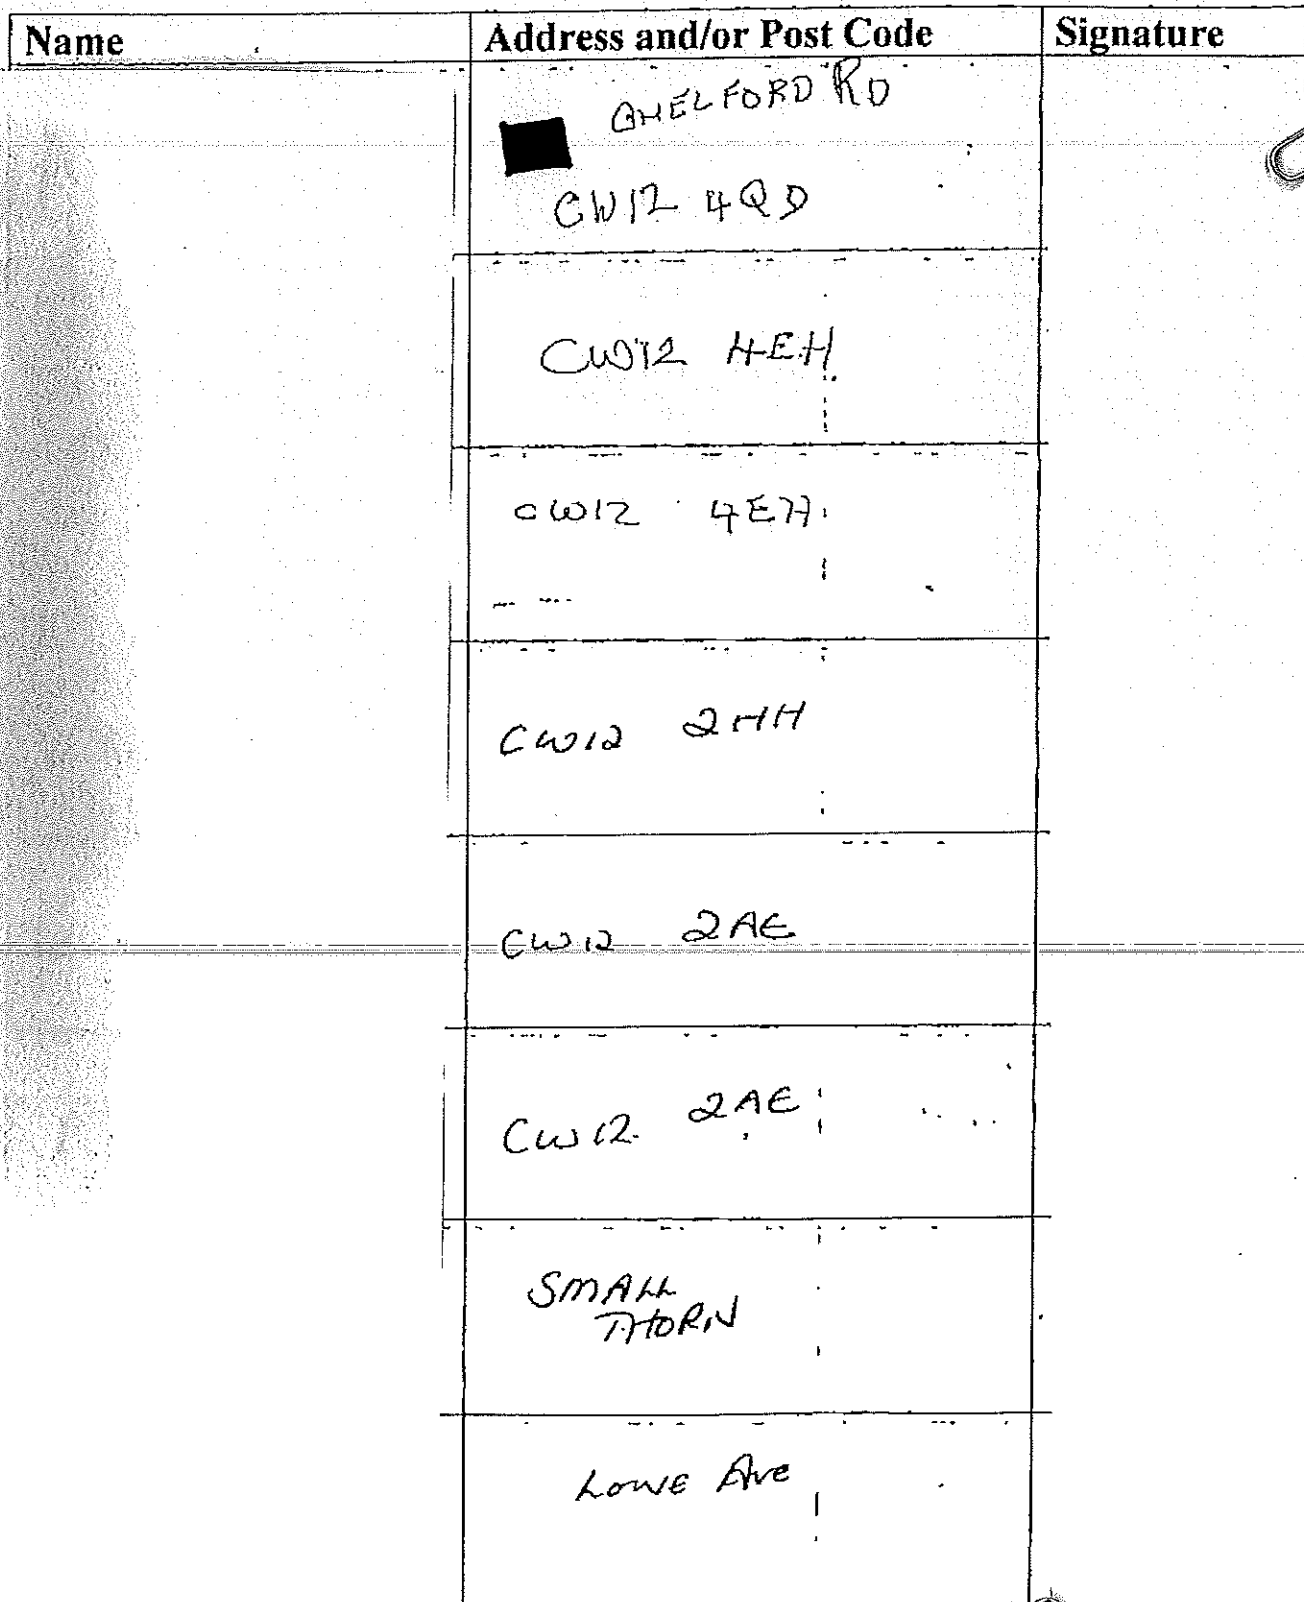 Name Address and/or Post Code Signature
CHELFORD RD
CW12 4QD
CW12 4EH
CW12 4EH
CW12 2HH
CW12 2AE
CW12 2AE
SMALL
THORN
LOWE Ave